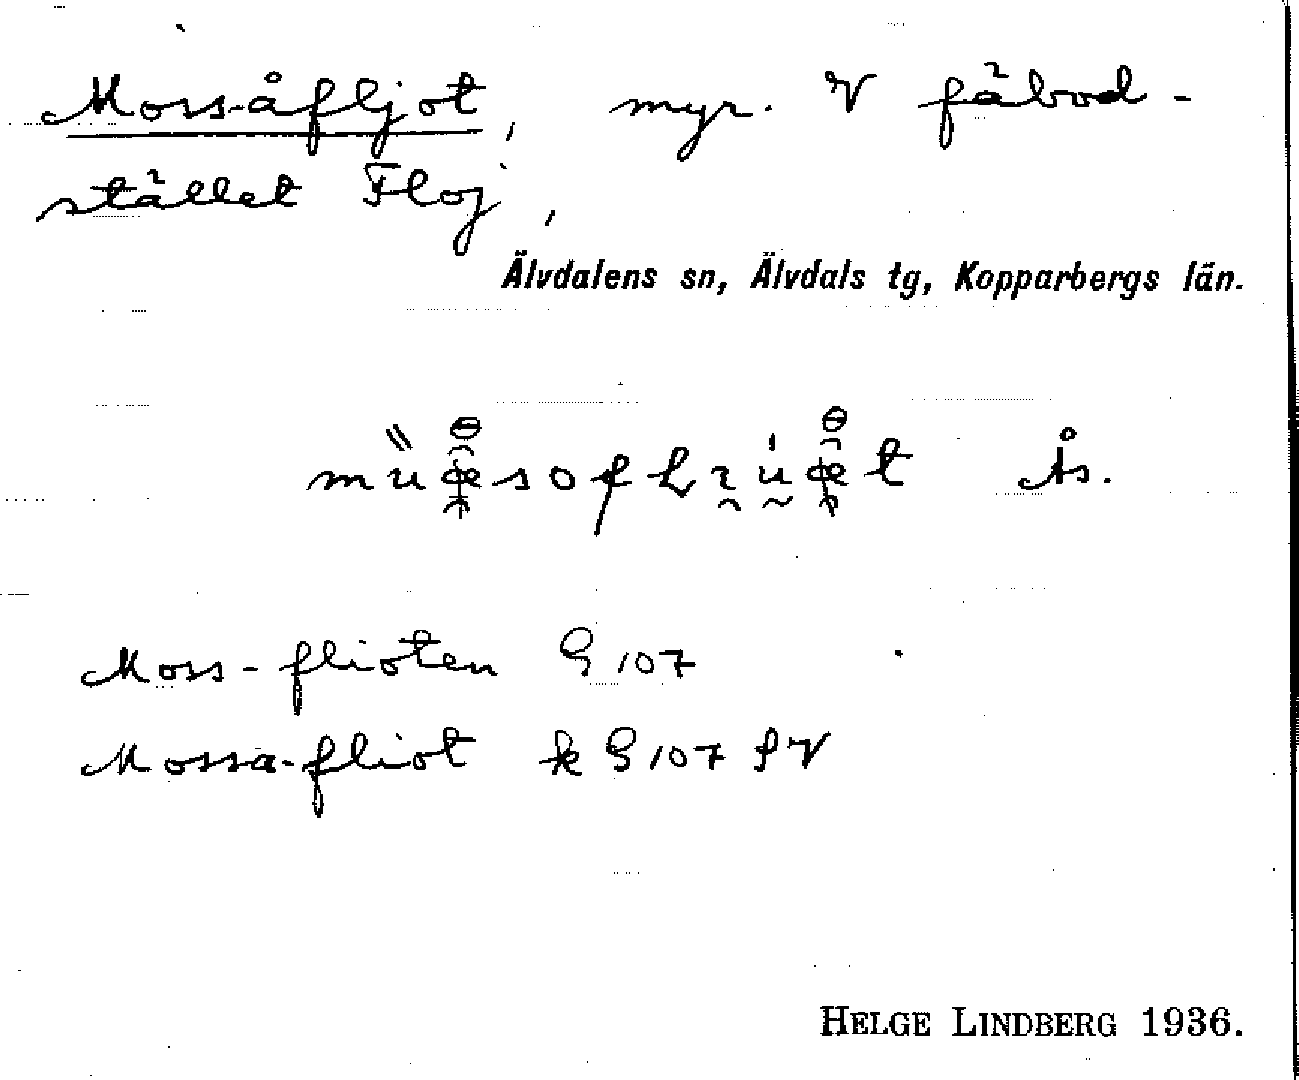 Moss-åfljot, myr. V fäbod-
stället Floj,
Älvdalens sn, Älvdals tg, Kopparbergs län.
Ås.
Moss-flioten G 107
Mossa-fliot k G 107 SV
HELGE LINDBERG 1936.